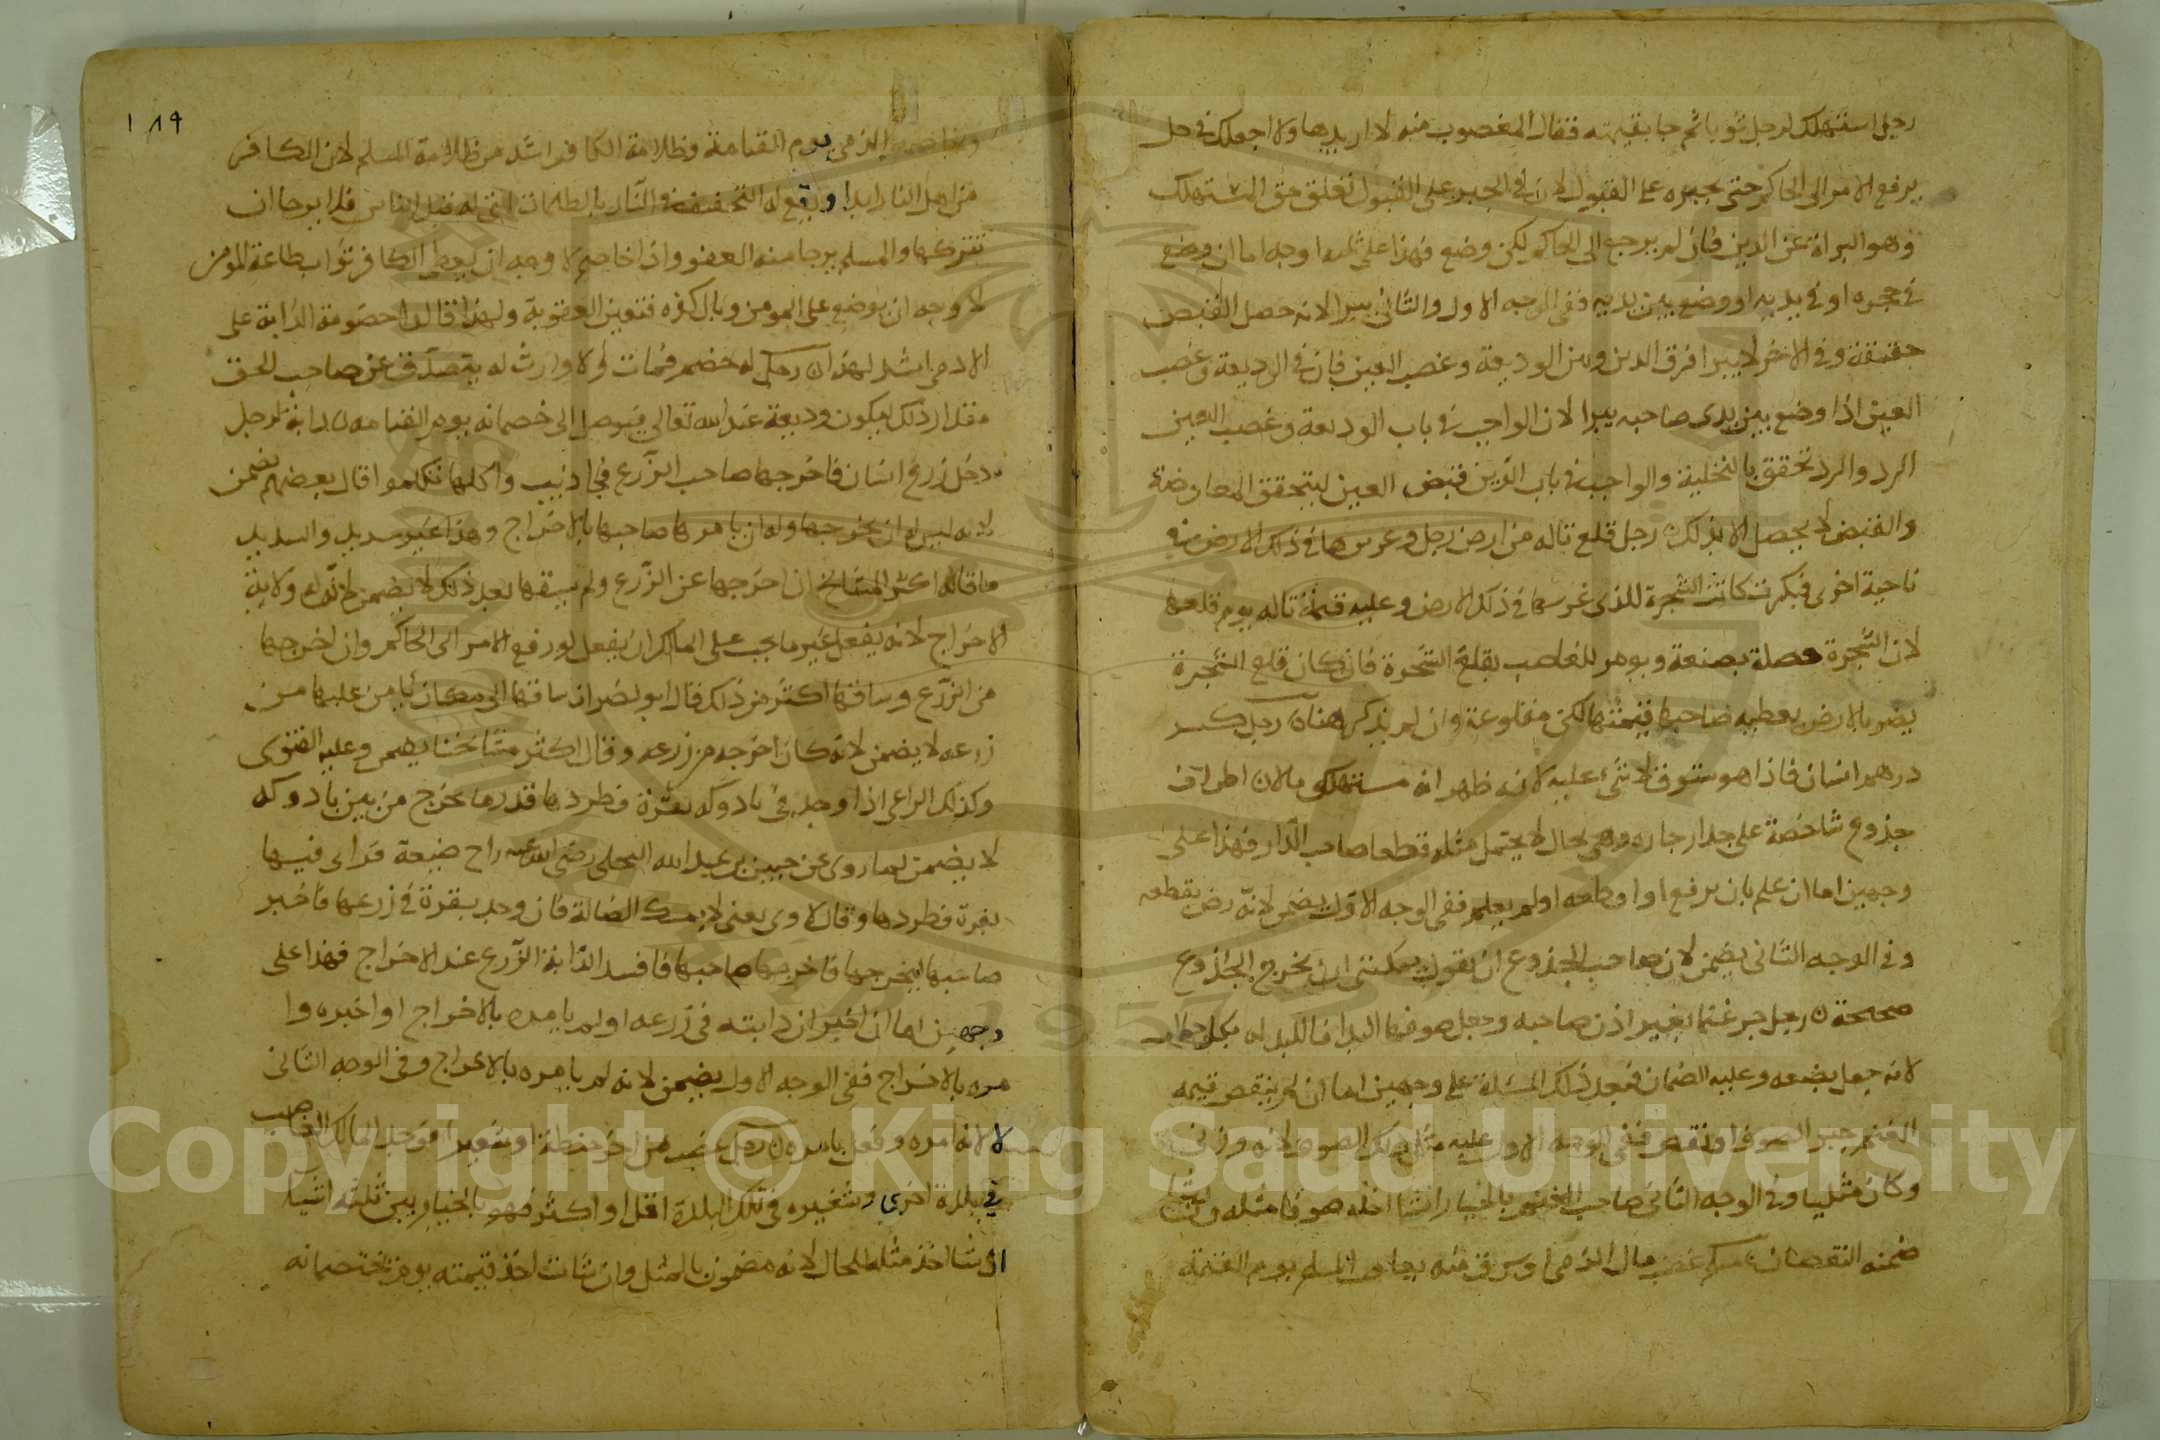 رجل استهلك لرجل ثوبا ثم جا بقيمته فقال المغصوب منه لا اريدها ولا اجعلك في حل
يرفع الامر الى الحاكم حتى يجبره على القبول لان في الجبر على القبول تعلق حق المستهلك
وهو البراة عن الدين فان لم يرجع الى الحاكم لكن وضع فهذا على ثلثه اوجه اما ان وضع
في حجره او في يديه او وضع بين يديه ففي الوجه الاول والثاني يبرا لانه حصل القبض
حقيقة وفي الاخر لا يبرا فرق الدين وبين الوديعة وغصب العين فان في الوديعة وغصب
العين اذا وضع بين يدي صاحبه يبرا لان الواجب في باب الوديعة وغصب العين
الرد والرد تحقق بالتخلية والواجب في باب الدين قبض العين ليتحقق المعاوضة
والقبض لا يحصل الا بذلك رجل قلع تاله من ارض رجل وغرسها في ذلك الارض في
ناحية اخرى فكبرت كانت الشجرة للذي غرسها في ذلك الارض وعليه قيمة تاله يوم قلعها
لان الشجرة حصلة بصنعة ويومر للغاصب بقلع الشجرة فان كان قلع الشجرة
يضر بالارض يعطيه صاحبها قيمتها لكن مقلوعة وان لم يذكر هنا رجل كسر
درهم انسان فاذا هو ستوق لا شيء عليه لانه ظهر انه مستهلك
جذوع شاخصة على جدار جاره وهي بحال لا يحتمل مثله قطعها صاحب الدار فهذا على
وجهين اما ان علم بان يرفع او اقطعه او لم يعلم ففي الوجه الاول يضمن لانه رضي بقطعه
وفي الوجه الثاني يضمن لان صاحب الجذوع ان يقول يمكنني ان يخرج الجذوع
صحيحة رجل جز غنما بغير اذن صاحبه وجعل صوفها
لانه جعل بصنعه وعليه الضمان فبعد ذلك المسئلة على وجهين اما ان لم ينقص قيمه
الغنم جز الصوف او نقص ففي الوجه الاول عليه مثل ذلك الصوف لانه وزني
وكان مثليا وفي الوجه الثاني صاحب الغنم بالخيار ان شا اخذ صوفا مثله وان شا
ضمنه النقصان مسلم غصب مال الذمي او سرق منه يعاقب المسلم يوم القيمة
١٨٩
ويخاصمه الذمي يوم القيامة وظلامة الكافر اشد من ظلامة المسلم لان الكافر
من اهل النار ابدا ويقع له التخفيف في النار بالظلمات التي له قبل الناس فلا يرجا ان
تتركها والمسلم يرجا منه العفو واذا خاصم لا وجه ان يعطى الكافر ثواب طاعة المؤمن
لا وجه ان يوضع على المومن وبال كفره فتعين العقوبة ولهذا قالوا خصومة الدابة على
الادمي اشد لهذا رجل له خصم فمات ولا وارث له يتصدق عن صاحب الحق
مقدار ذلك ليكون وديعة عند الله تعالى فيوصل الى خصمانه يوم القيامه دابة لرجل
دخل زرع انسان فاخرجها صاحب الزرع فجا ذئب واكلها تكلموا قال بعضهم يضمن
لانه ليس له ان يخرجها وله ان يامرها صاحبها بالاخراج وهذا غير سديد والسديد
ما قاله اكثر المشايخ ان اخرجها عن الزرع ولم يسقها بعد ذلك لا يضمن لانه له ولاية
الاخراج لانه يفعل غير ما يجب على المالك ان يفعل لو رفع الامر الى الحاكم وان اخرجها
من الزرع وساقها اكثر من ذلك قال ابو نصر ان ساقها الى مكان يامن عليها من
زرعه لا يضمن لانه كان اخرجه من زرعه وقال اكثر مشايخنا يضمن وعليه الفتوى
وكذلك الراعي اذا وجد في بادوكه بقرة فطردها قدر ما يخرج من بين بادوكه
لا يضمن لما روي عن جبير بن عبد الله البجلي رضي الله عنه راح ضيعة فراى فيها
بقرة فطردها وقال لاوي يعني لا يمسك الضالة فان وجد بقرة في زرعها فاخبر
صاحبها ليخرجها فاخرجها صاحبها فافسد الدابة الزرع عند الاخراج فهذا على
وجهين اما ان اخبر ان دابته في زرعه او لم يامره بالاخراج او اخبره وا
مره بالاخراج ففي الوجه الاول يضمن لانه لم يامره بالاخراج وفي الوجه الثاني
لا لانه امره وفعل بامره رجل غصب من اخر حنطة او شعيرا فوجد المالك الغاصب
في بلدة اخرى وشعيره في تلك البلدة اقل او اكثر فهو بالخيار بين ثلثه اشيا
ان شا اخذ مثله للحال لانه مضمون بالمثل وان شات اخذ قيمته يوم تختصمانه
Copyright © King Saud University
1957